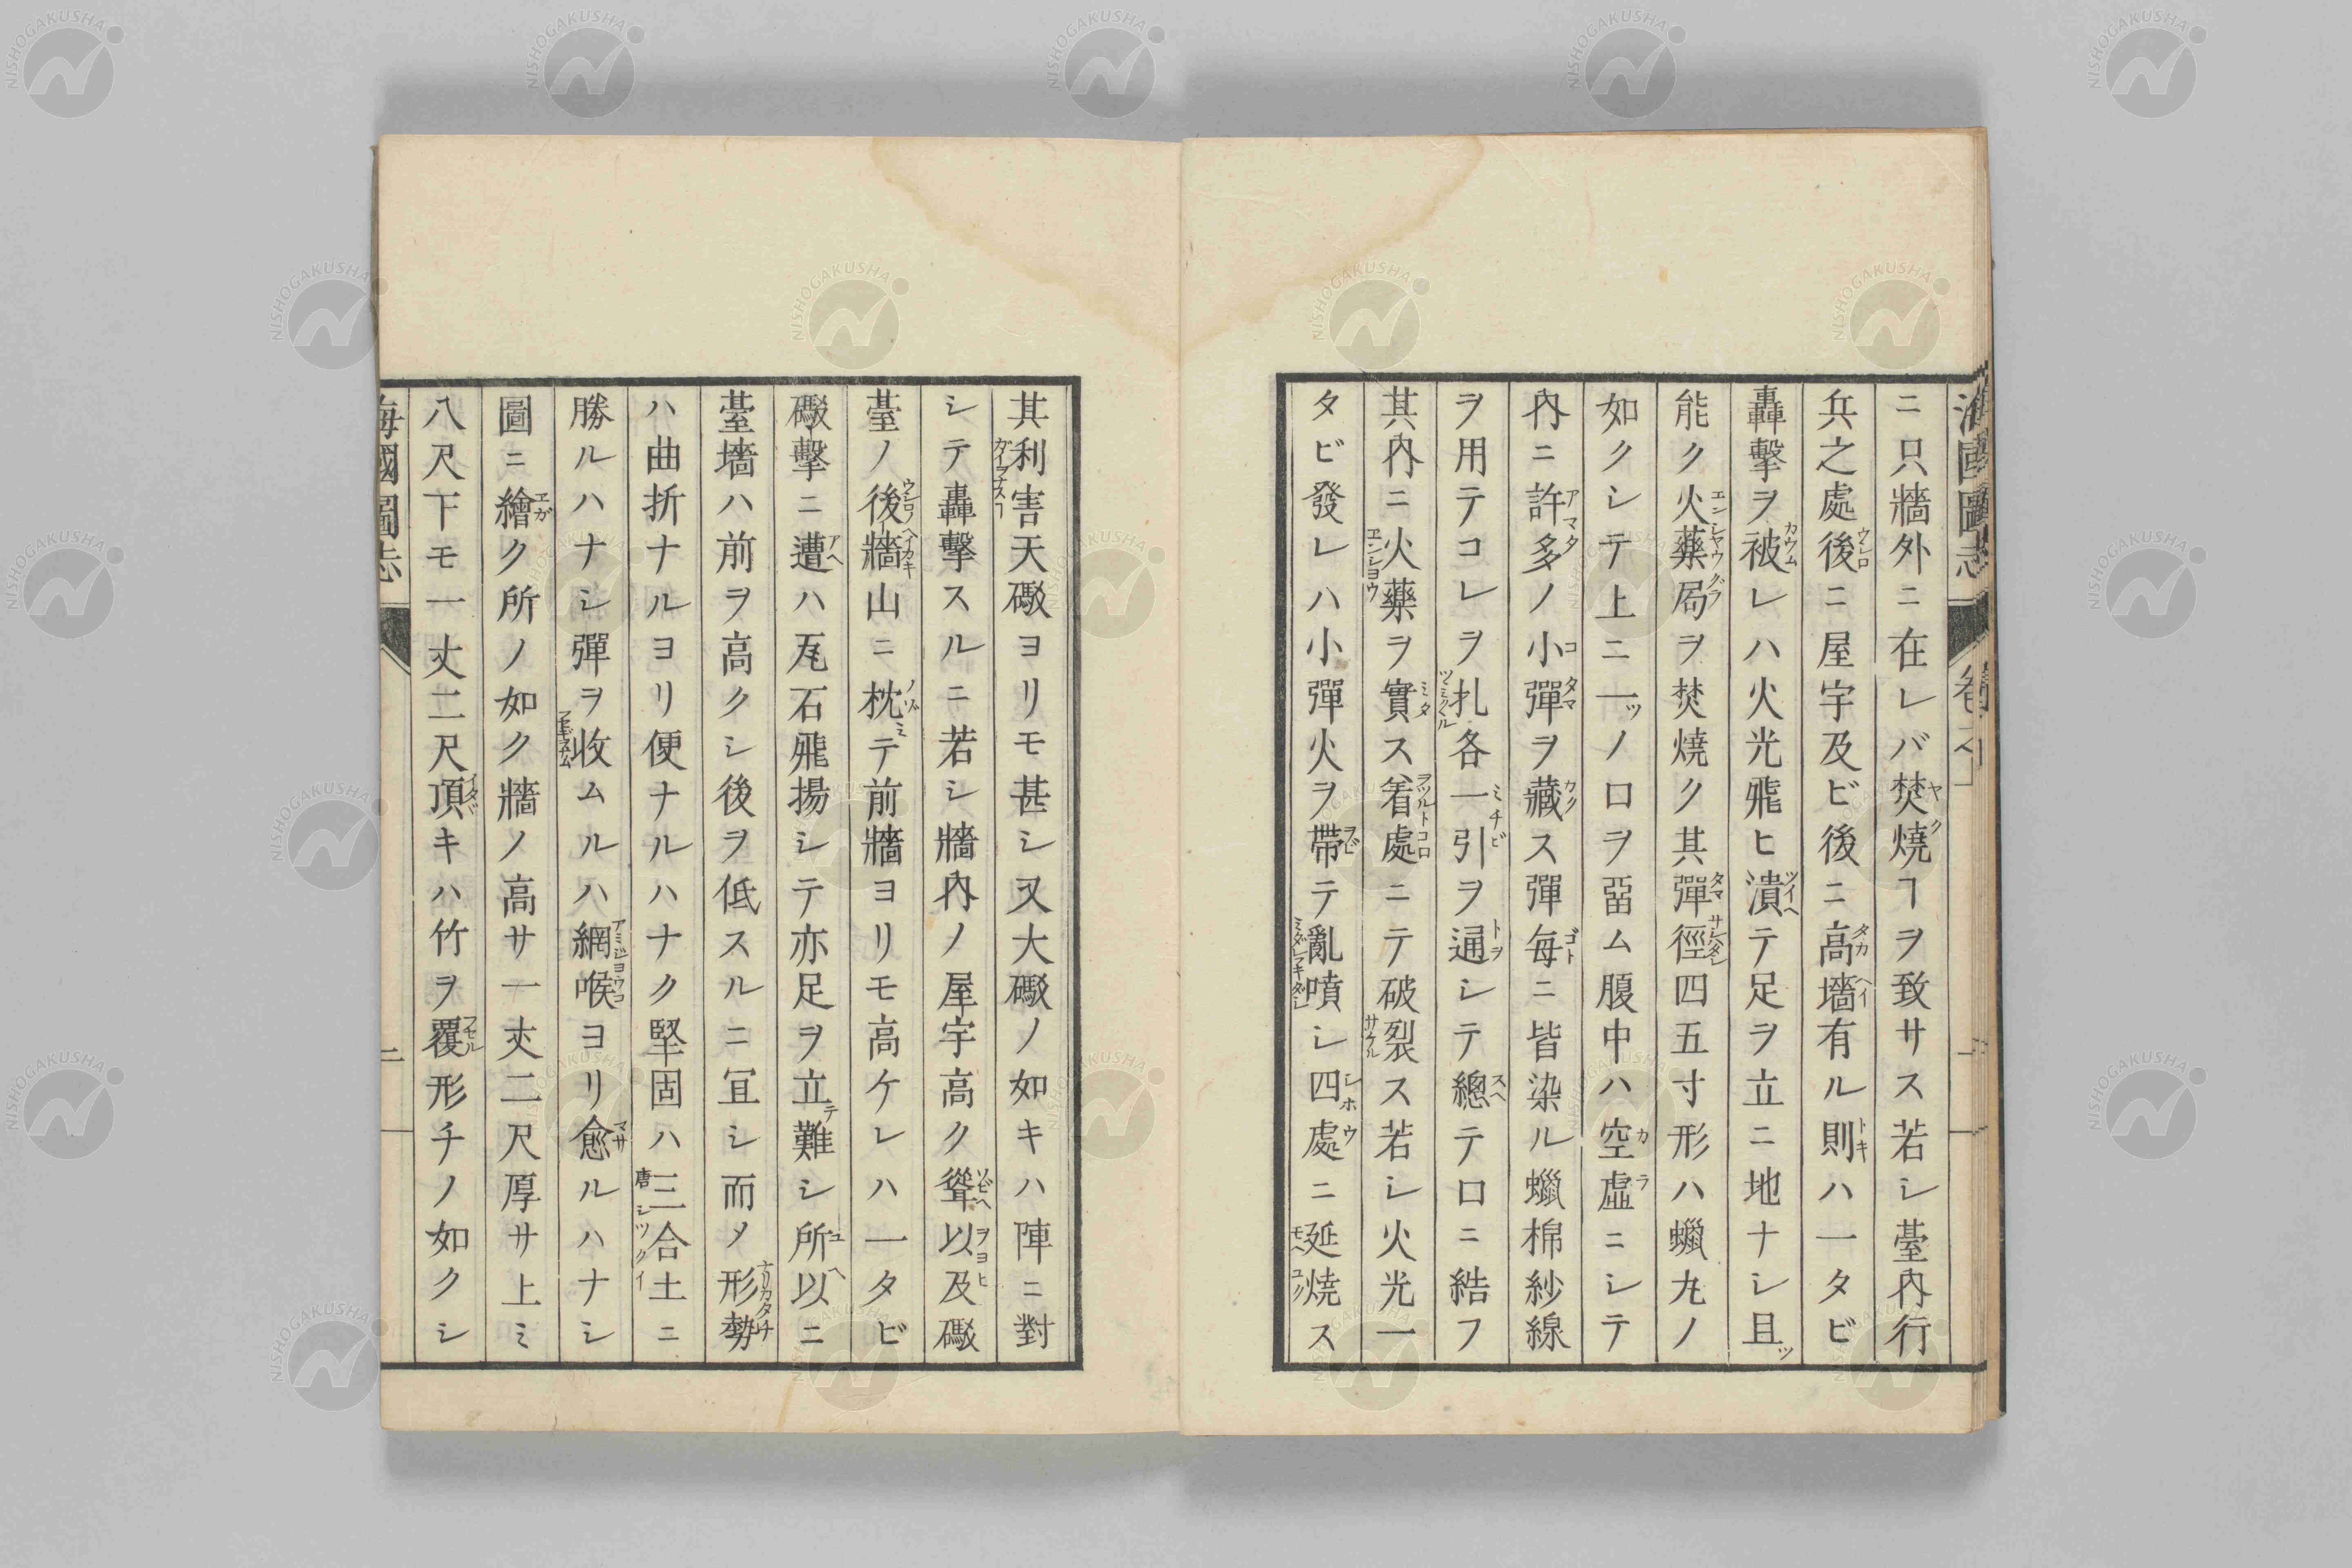 ニ只牆外ニ在レバ焚燒ヿヲ致サス若シ臺內行
兵之處後ニ屋宇及ビ後ニ高墻有ル則ハ一タビ
轟擊ヲ被レハ火光飛ヒ潰テ足ヲ立ニ地ナシ且ッ
能ク火藥局ヲ焚燒ク其彈徑四五寸形ハ蠟丸ノ
如クシテ上ニ一ッノ口ヲ畱ム腹中ハ空虛ニシテ
內ニ許多ノ小彈ヲ藏ス彈每ニ皆染ル蠟棉紗線
ヲ用テコレヲ扎各一引ヲ通シテ總テ口ニ結フ
其內ニ火藥ヲ實ス着處ニテ破裂ス若シ火光一
タビ發レハ小彈火ヲ帶テ亂噴シ四處ニ延燒ス
其利害天礮ヨリモ甚シ又大礮ノ如キハ陣ニ對
シテ轟擊スルニ若シ牆內ノ屋宇高ク聳以及礮
臺ノ後牆山ニ枕テ前牆ヨリモ高ケレハ一タビ
礮擊ニ遭ハ瓦石飛揚シテ亦足ヲ立テ難シ所以ニ
臺墻ハ前ヲ高クシ後ヲ低スルニ宜シ而メ形勢
ハ曲折ナルヨリ便ナルハナク堅固ハ三合土ニ
勝ルハナシ彈ヲ收ムルハ網喉ヨリ愈ルハナシ
圖ニ繪ク所ノ如ク牆ノ高サ一丈二尺厚サ上ミ
八尺下モ一丈二尺頂キハ竹ヲ覆形チノ如クシ
海國圖志
二